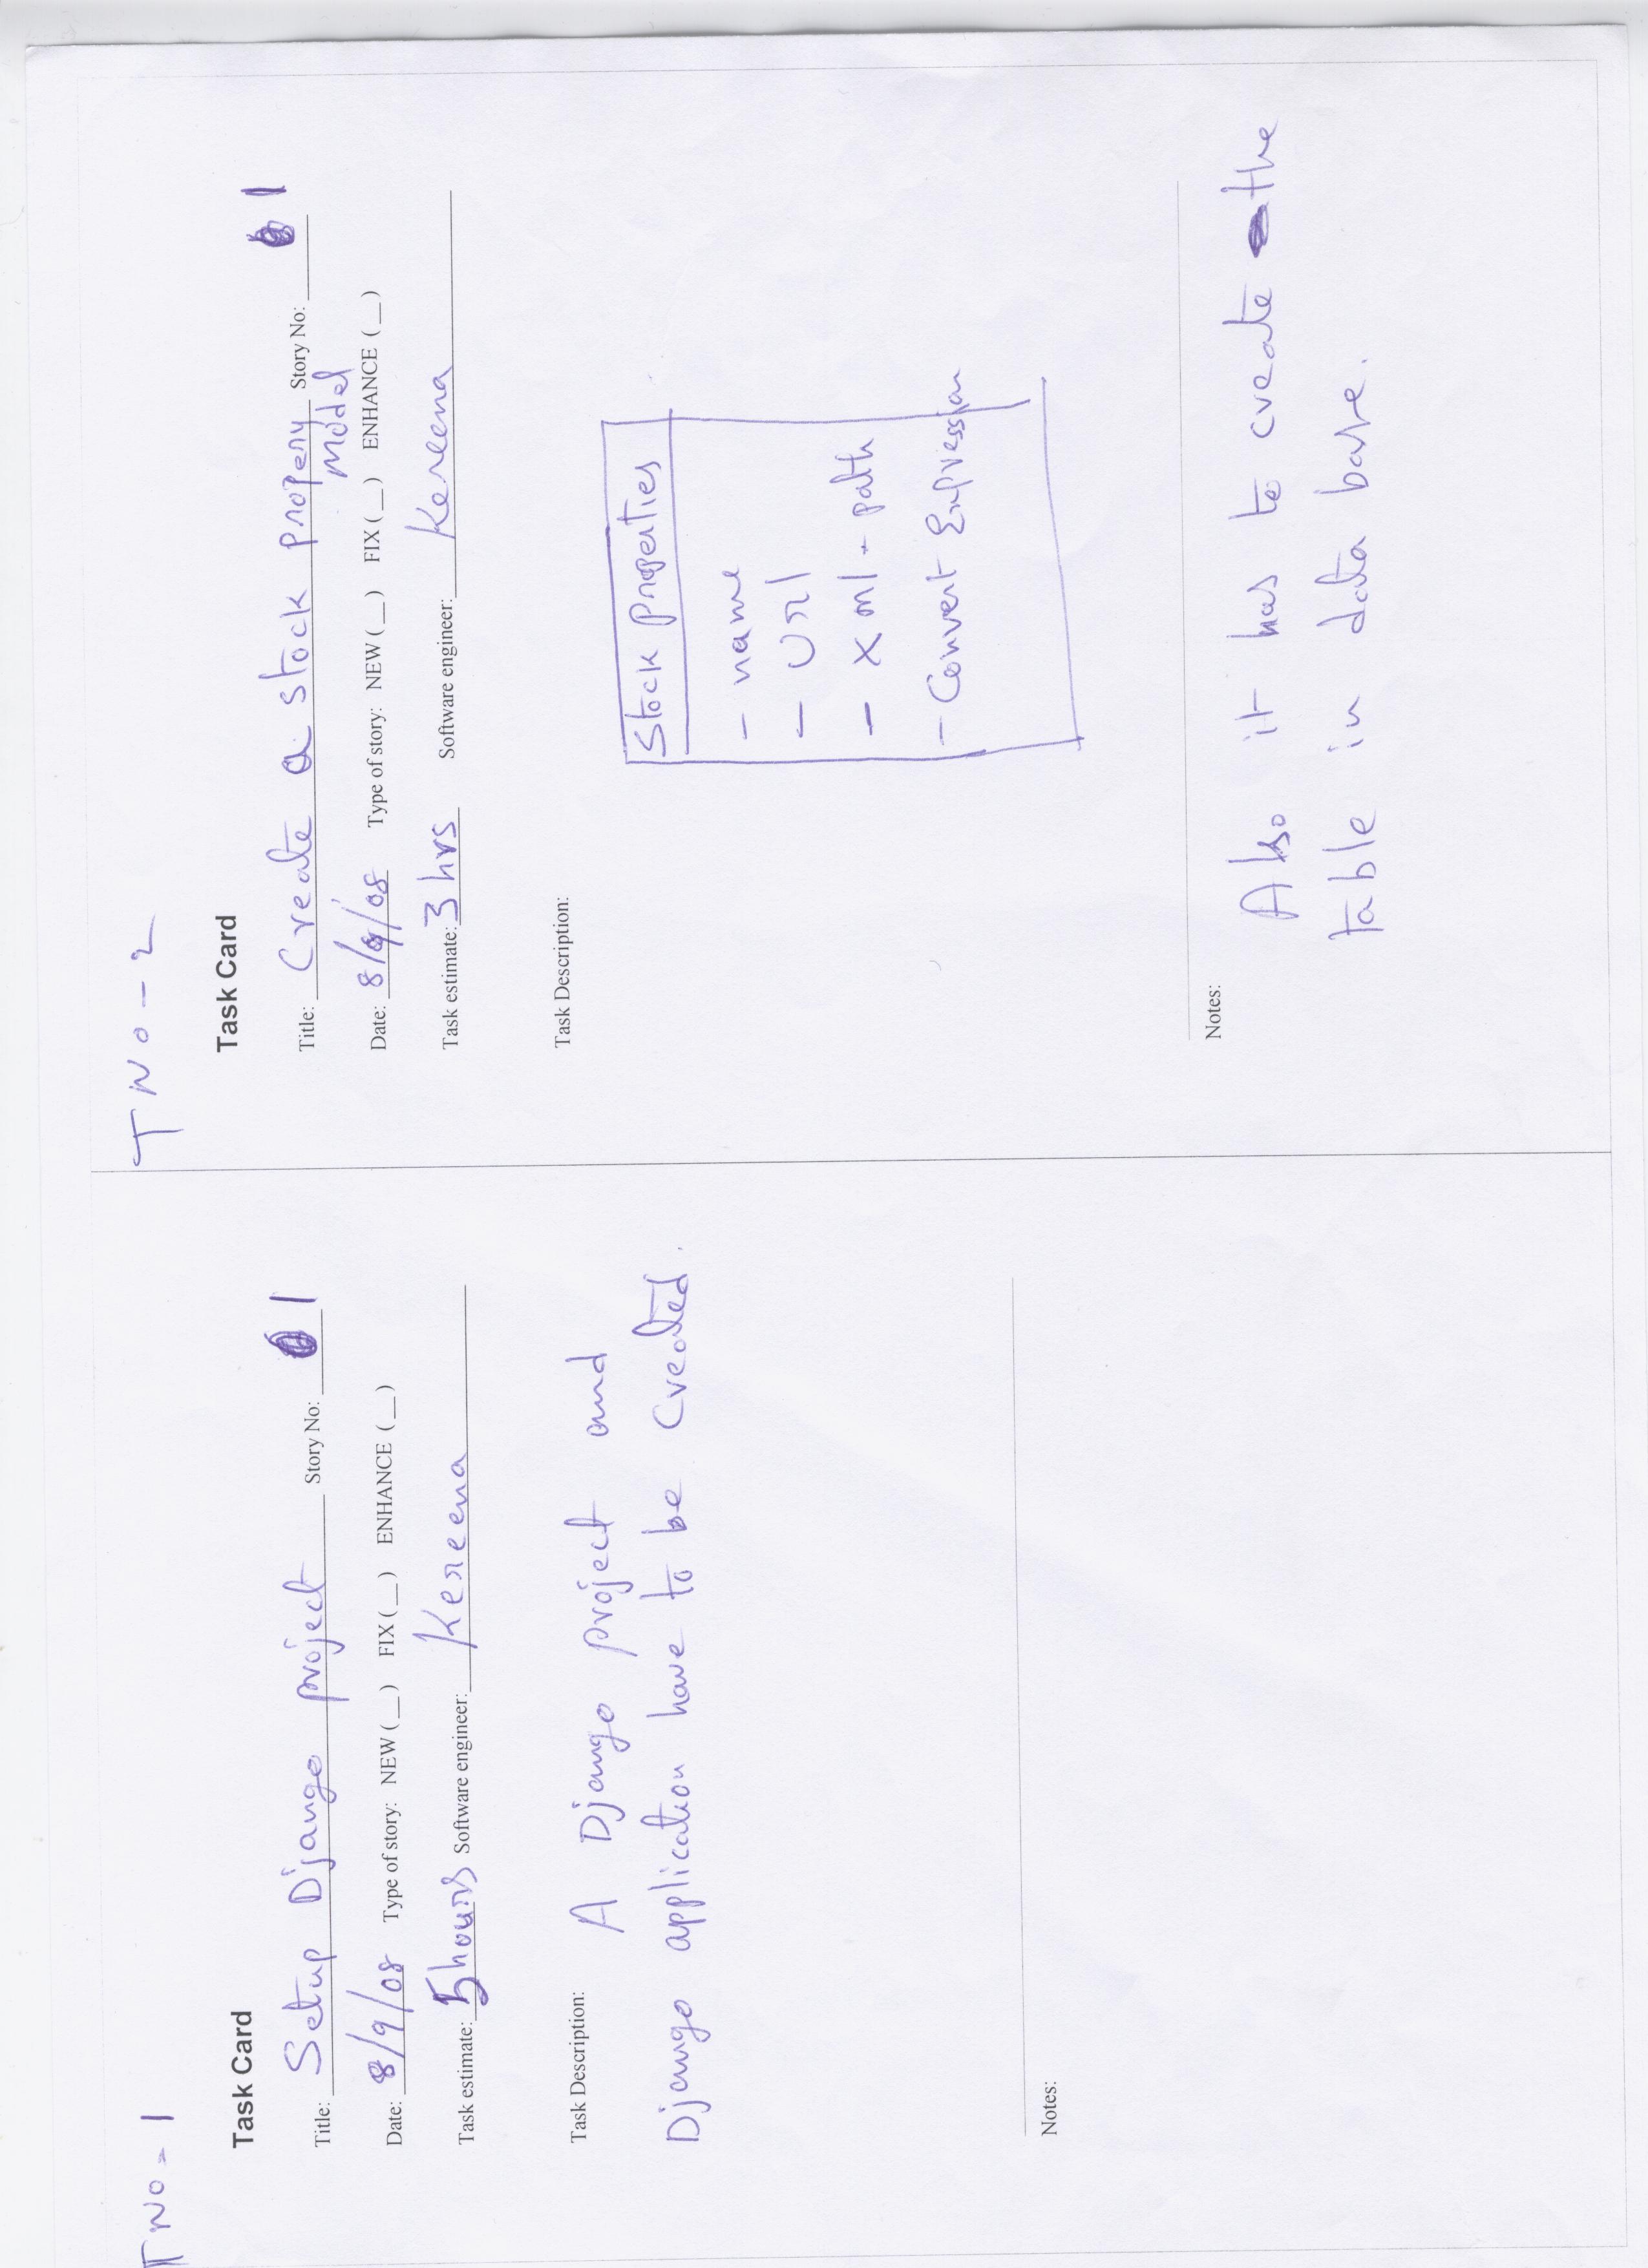 TNO - 1
Task Card
Title: Setup Django project Story No: 1
Date: 8/9/08 Type of story: NEW (__) FIX (__) ENHANCE (__)
Task estimate: 5 hours Software engineer: Kereena
Task Description:
A Django project and
Django application have to be created.
Notes:
TNO - 2
Task Card
Title: Create a stock property Story No: 1
model
Date: 8/9/08 Type of story: NEW (__) FIX (__) ENHANCE (__)
Task estimate: 3 hrs Software engineer: Kereena
Task Description:
Stock properties
- name
- url
- xml - path
- Convert Expression
Notes:
Also it has to create the
table in data base.